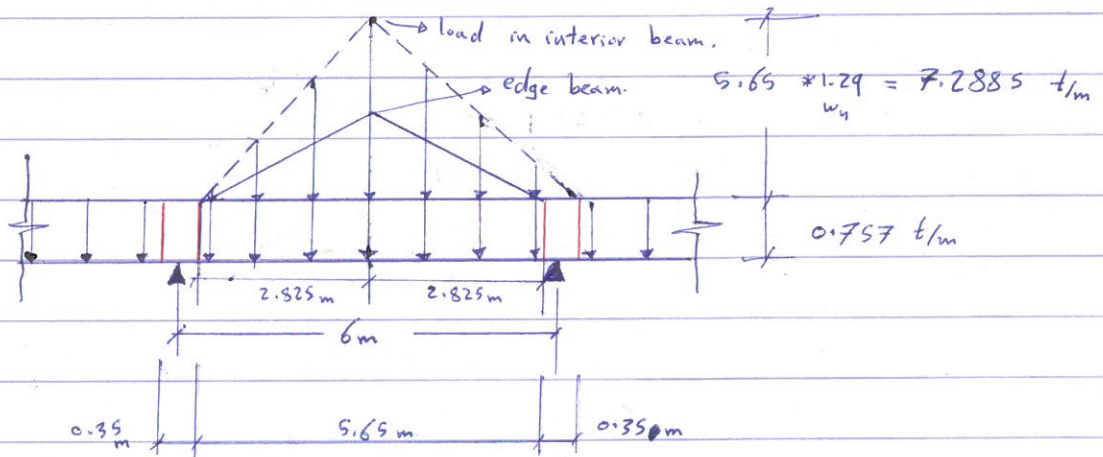 load in interior beam.
edge beam.
5.65 *1.29 = 7.2885 t/m
wu
0.757 t/m
2.825m
2.825m
6m
0.35 m
5.65 m
0.35 m